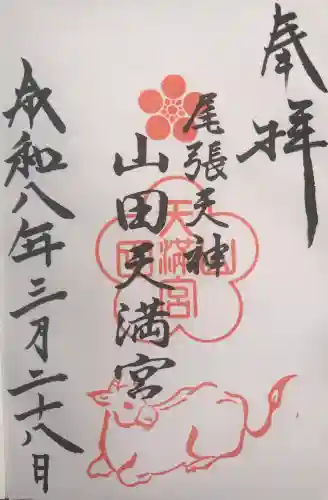 奉拝
尾張天神
山田天満宮
山田天満宮
令和八年三月二十八日